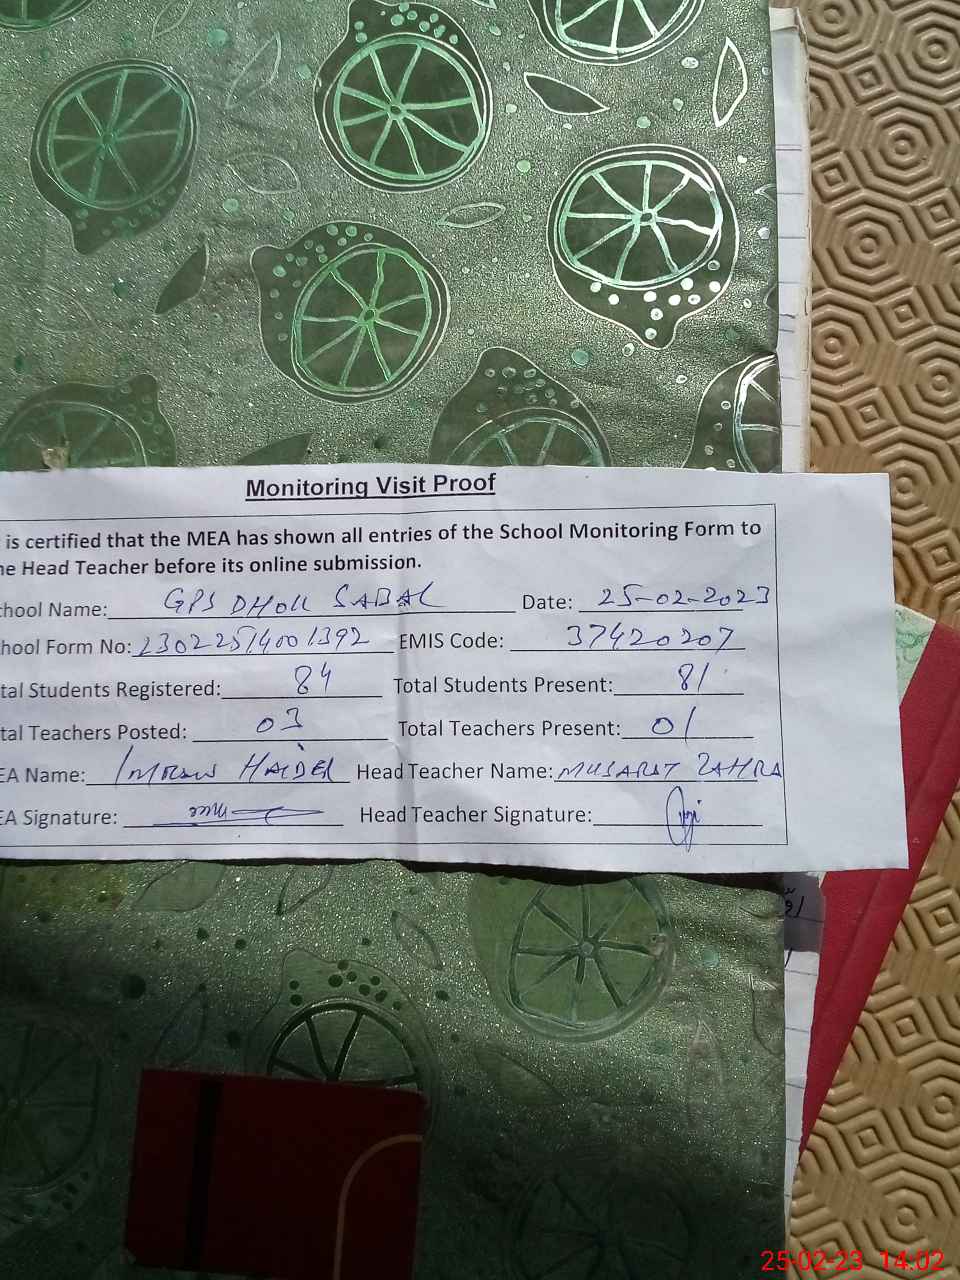 Monitoring Visit Proof
is certified that the MEA has shown all entries of the School Monitoring Form to
he Head Teacher before its online submission.
chool Name: GPS DHOK SABAL Date: 25-02-2023
hool Form No: 23022514001392 EMIS Code: 37420207
tal Students Registered: 84 Total Students Present: 81
tal Teachers Posted: 03 Total Teachers Present: 01
EA Name: Imran HAIDER Head Teacher Name: MUSARAT ZAHRA
EA Signature: Head Teacher Signature:
25-02-23 14:02